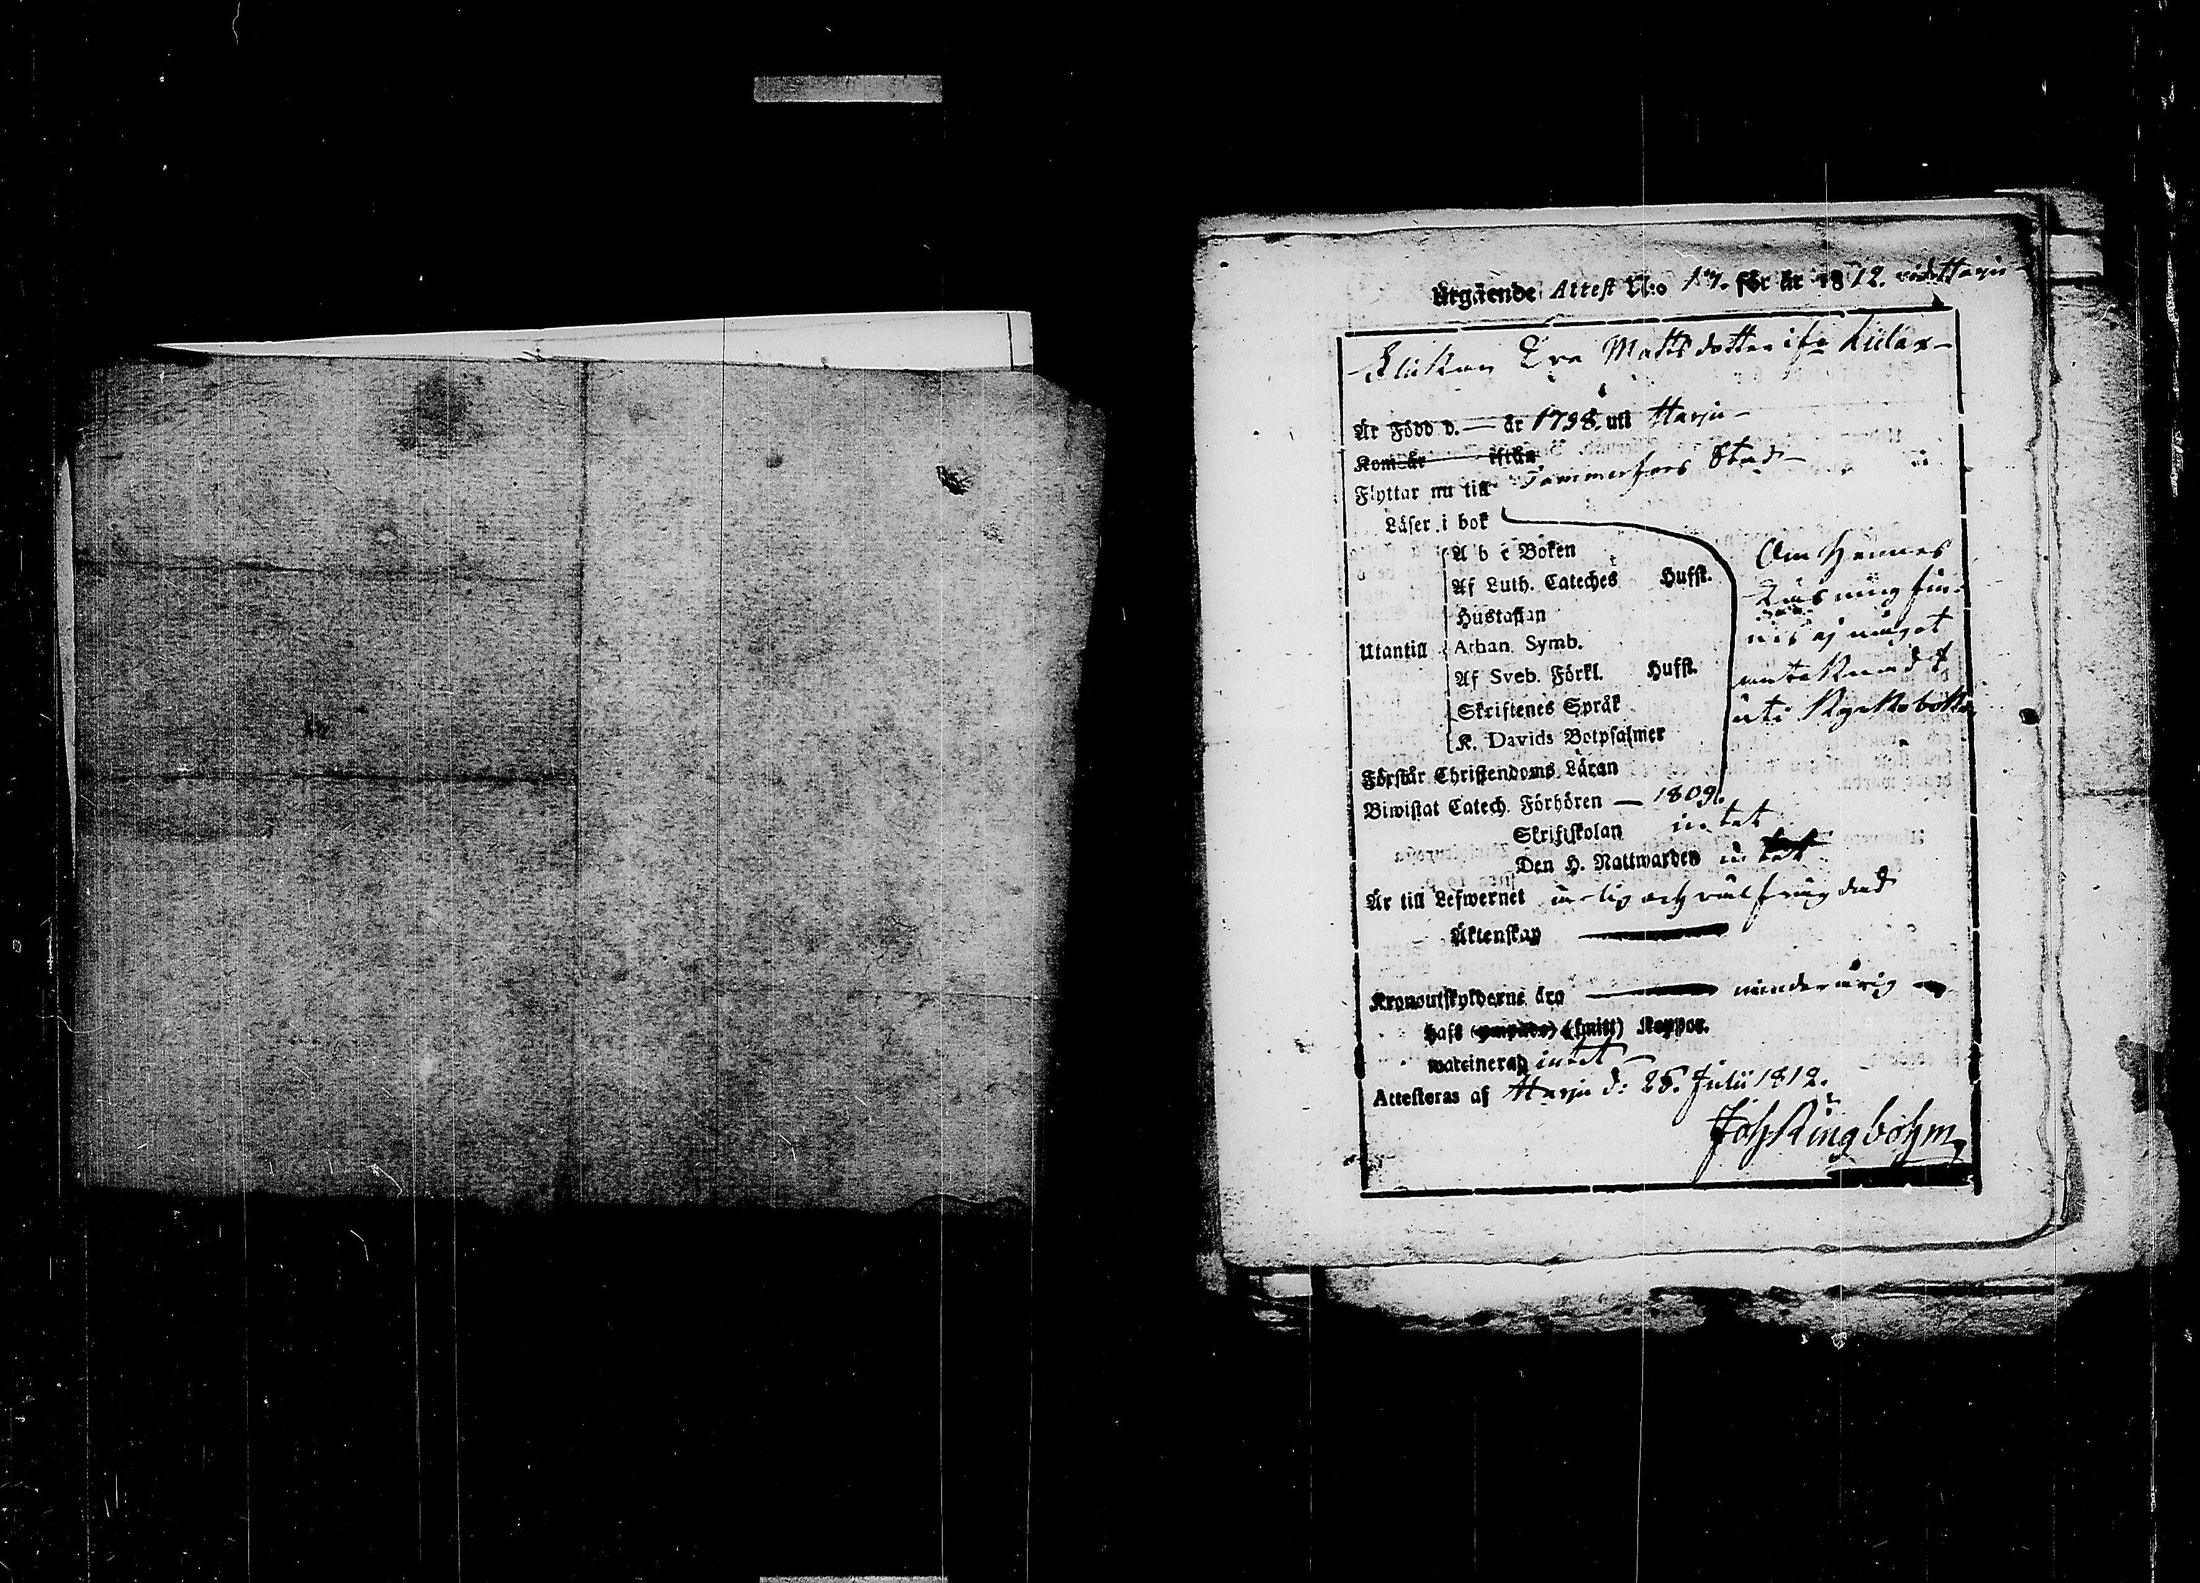 Utgående Attest N:o 17. för år 1812. vid Harju
Flickan Eva Mattsdotter ifr
Är Född d. — år 1798. uti Harju
Kom år ifrån
Flyttar nu till Tammerfors Stad
Läser i bok
A b c Boken
Af Luth. Cateches Hufst.
Hustaflan
Utantill Athan. Symb.
Af Sveb. Förkl. Hufst.
Skriftenes Språk
K. Davids Botpsalmer
Om hennes
Läsning fin-
nes ej något
antecknadt
uti Kyrkoboken
Förstår Christendoms Läran
Biwistat Catech. Förhören — 1809.
Skriftskolan intet
Den H. Nattwarden intet
Är till Lefwernet ärlig och välfrägdad
Äktenskap
Kronoutskylderne äro minderårig
haft (smitt) Koppor.
waccinerad intet
Attesteras af Harju d. 26. Julii 1812.
Joh Ringbohm